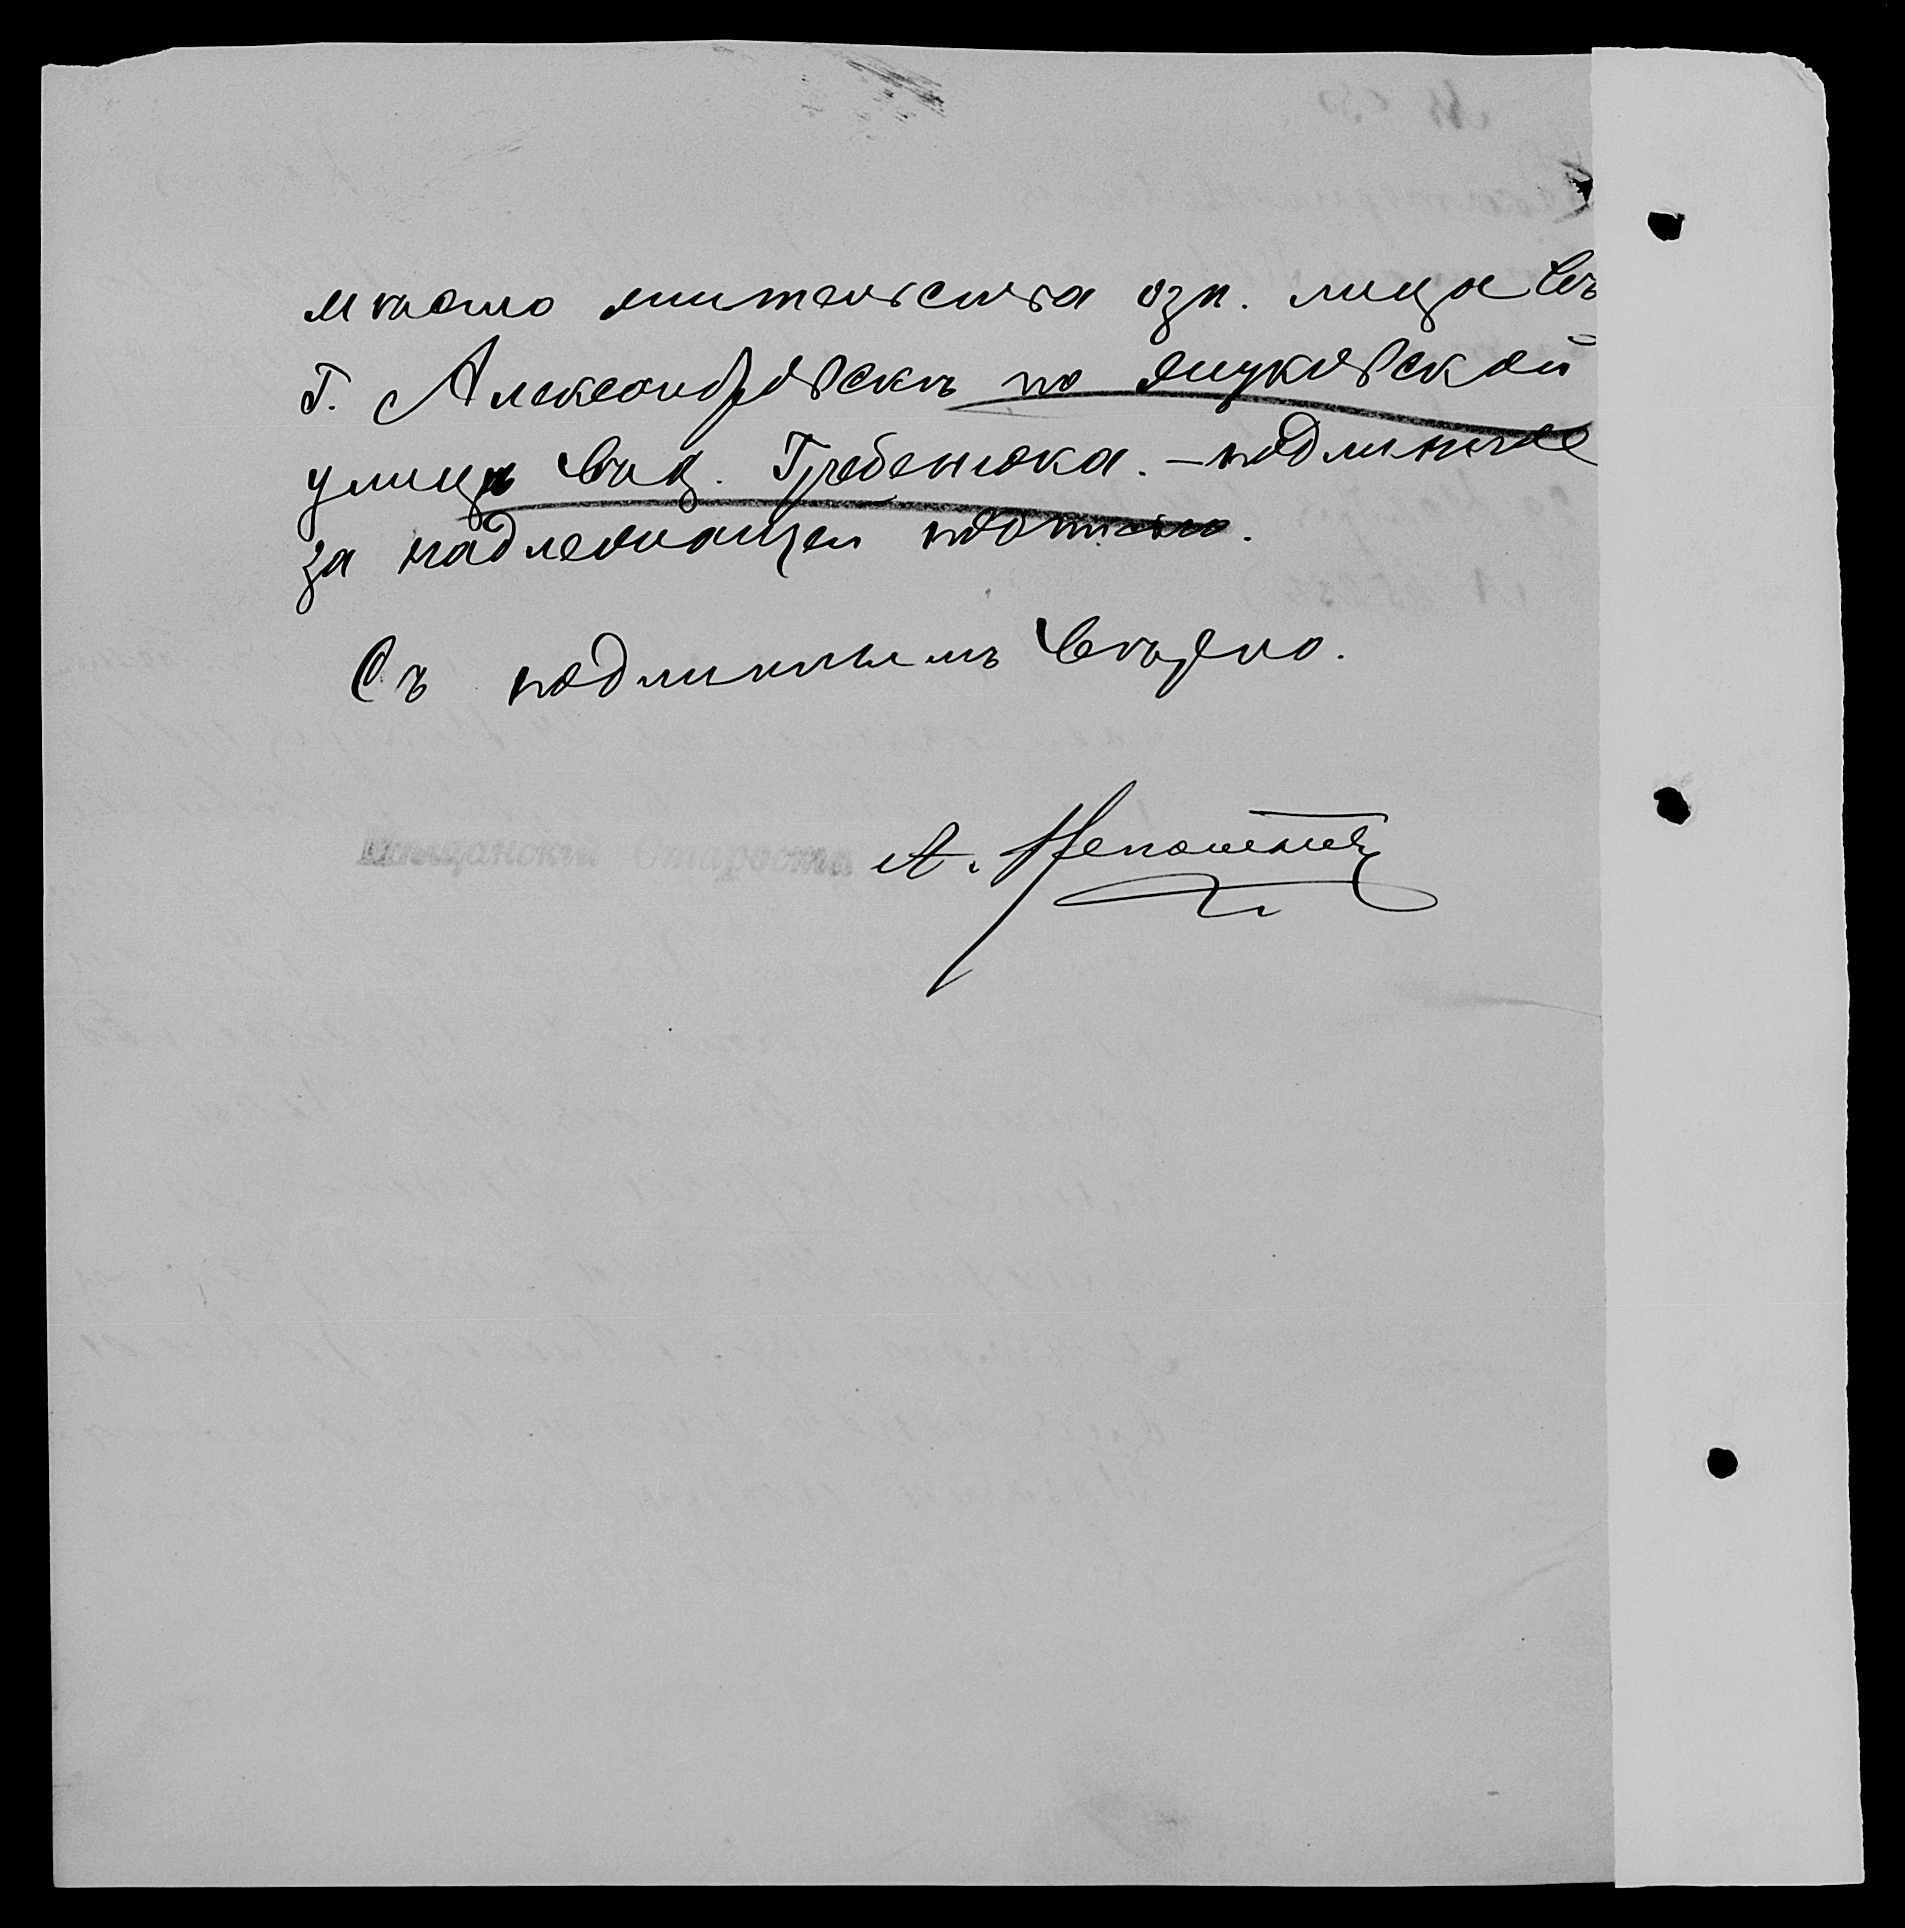 мѣсто жительства озн. лица въ
г. Александровскѣ по Жуковской
улицѣ въ д. Гребенюка. — подлинное
за надлежащей подписью.
Съ подлиннымъ вѣрно.
Мѣщанскій Староста А.